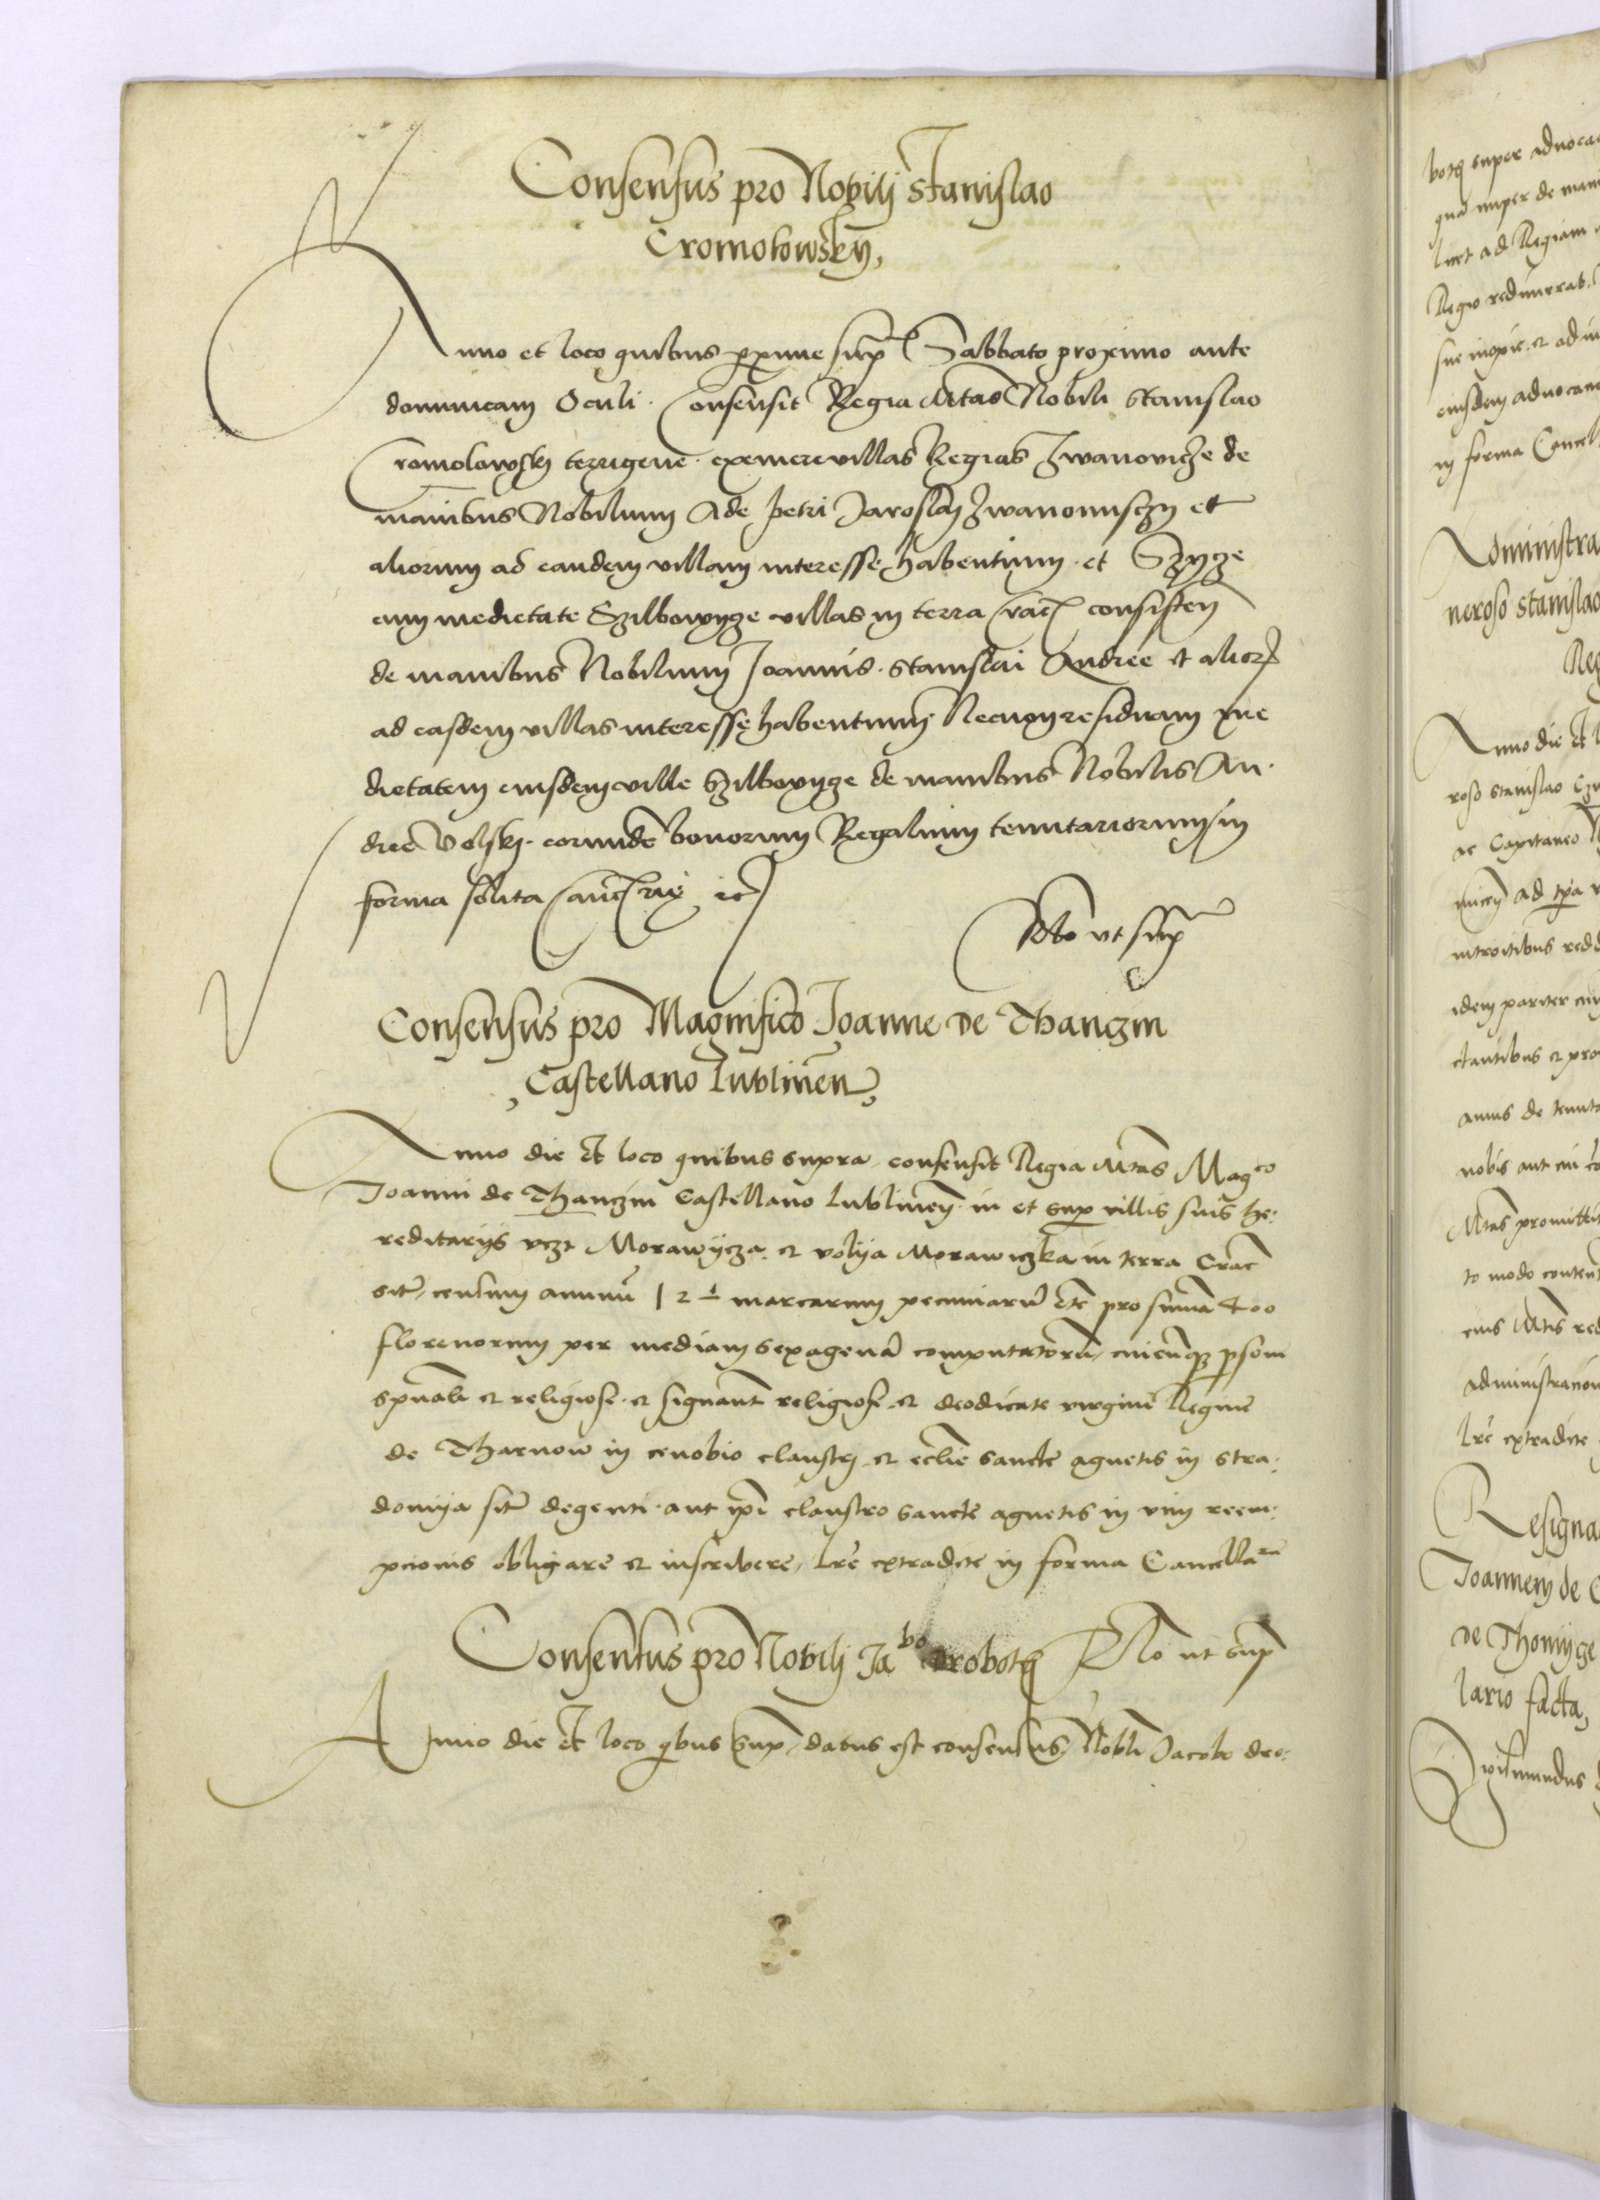 Consensus pro Nobilj Stanislao
Cromolowskÿ,
Anno et loco quibus proxime sup Sabbato proximo ante
dominicam Oculi. Consensit Regia Mtas Nobili Stanislao
Cromolowskj terrigene. exemere villas Regias Jwanovicze de
manibus Nobilium Ade petri Jaroslaj et
aliorum ad eandem villam interesse habentium. et
cum medietate Szilbowÿge villas in terra Crac consisten
de manibus Nobilium Joannis. Stanislai Andree et alior
ad easdem villas interesse habentium Necnon residuam me
dietatem eiusdem ville Szilbowÿge de manibus Nobilis An.
dree Volskj. eorundẽ bonorum Regalium tenutariorum in
forma solita Canc rie etc
Rlo ut sup
Consensus pro Magnifico Joanne de Thanczin
Castellano Lublinen,
Anno die et loco quibus supra, consensit Regia Mtas Magco
Joanni de Thanczin Castellano Lublinen. in et sup villis suis he:
reditarijs vczt Morawÿcza. et volÿa Morawiczka in terra Crac
sit, censum annuũ 12 ½ marcarum pecuniarũ etc pro sum̃a 400
florenorum per mediam sexagenã computatorũ, cuicunq3 psone
spũali et religiose. et signant religiose. et deodicate virginẽ Regine
de Tharnow in cenobio claustrj et ecclie sancte agnetis in stra:
domÿa sit degenti. aut ipi claustro sancte agnetis in vim reem:
pcionis obligare et inscribere, Lre extradite in forma Cancellarie
Consensus pro Nobilj Jabo drobotẏ Rlo ut sup
Anno die et loco qbus sup, datus est consensus Nobli Jacobo dro:
botj super advoca
qua nuper de man
licet ad Regiam
Regio redimerat.
sue inopie. et ad
eiusdem advocacie
in forma Cancel
Administra
neroso Stanislao
Reg
Anno die et l
roso Stanislao
ac Capitaneo
ad
introitibus red
idem pariter cum
ctantibus et pro
annis de tenuta
nobis aut cui
Mtas promittit
to modo content
eius Mtis red
administracion
Lre extradite
Resigna
Joannem de
de Thomÿge
lario facta,
Sigismundus